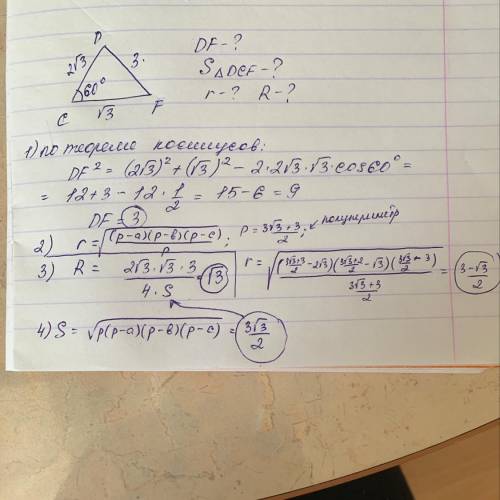 D
2√3
3.
60°
C
√3
F
DF - ?
S△DCF - ?
r - ? R - ?
1) по теореме косинусов:
DF² = (2√3)² + (√3)² - 2·2√3·√3·cos60° =
= 12 + 3 - 12 · 1/2 = 15 - 6 = 9
DF = 3
2) r = √((p-a)(p-b)(p-c)/p) ; p = (3√3+3)/2 ; полупериметр
3) R = (2√3·√3·3)/(4·S) = √3
r = √(((3√3+3)/2 - 2√3)((3√3+3)/2 - √3)((3√3+3)/2 - 3)/((3√3+3)/2)) = (3-√3)/2
4) S = √(p(p-a)(p-b)(p-c)) = 3√3/2